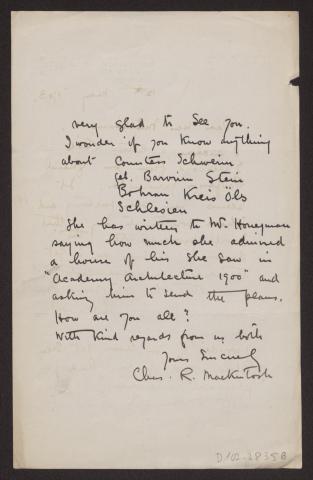 very glad to see you.
I wonder if you know anything
about Countess Schwerin
Stein
Bohrau Kreis Öls
Schlesien
She has written to Mr. Honeyman
saying how much she admired
a house of his she saw in
"Academy Architecture 1900" and
asking him to send the plans.
How are you all?
With kind regards from us both
Yours Sincerely
Chas. R. Mackintosh